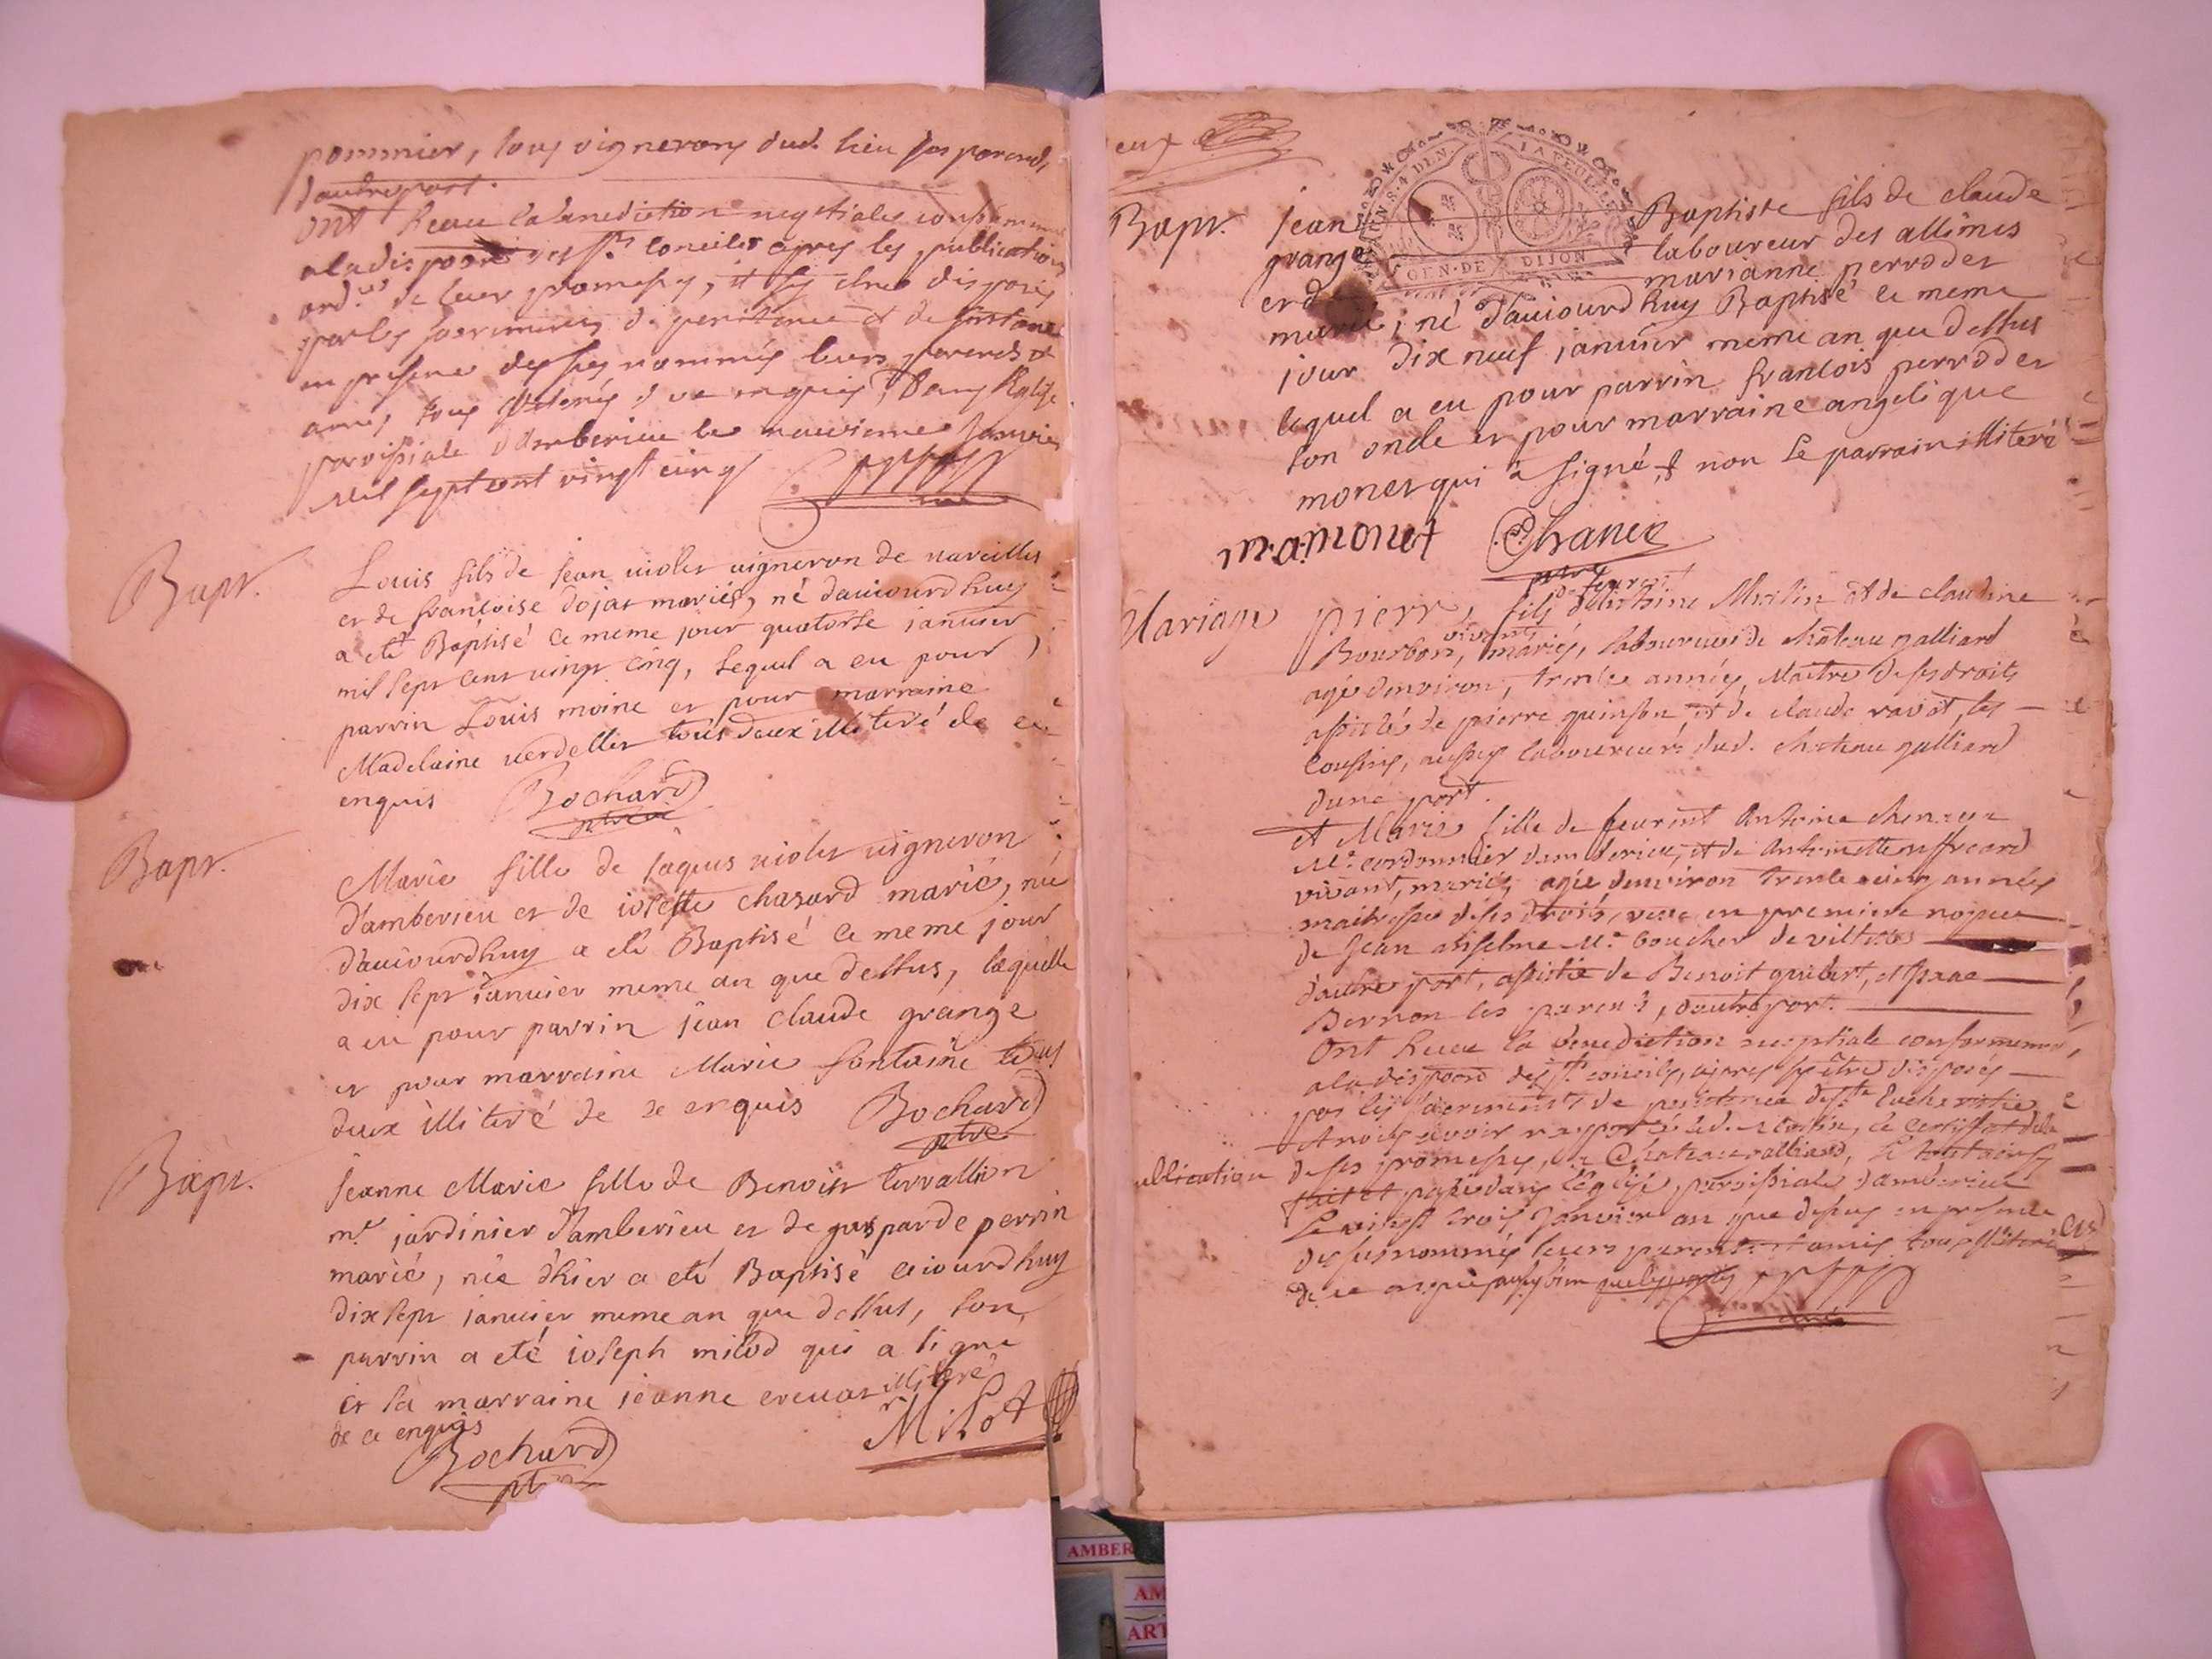 pommier, tous vignerons dud. lieu ses parends
d'autre part.
ont Receu la benediction nuptiale conformement
a la dispoon des sts conciles apres les publications
ordres de leur promesses, et
par les sacremens de penitence et de
en presence des sus nommés leurs parends et
amis, tous illiterés de ce enquis, Dans l'Eglise
parroissiale d'amberieu le janvier
mil sept cent vingt cinq
Bapt.
Louis fils de jean violet vigneron de vareilles
et de francoise dojat mariés, né d'auiourdhuy
a eté Baptisé ce meme jour quatorse januier
mil sept cent vingt cinq, lequel a eu pour
parrin Louis moine et pour marraine
Madelaine verdellet tous deux illiteré de ce
enquis Bochard
ptre
Bapt.
Marie fille de jaques violet vigneron
d'amberieu et de iosette chasard marié, née
d'auiourdhuy a eté Baptisé ce meme jour
dix sept januier meme an que dessus, laquelle
a eu pour parrin jean claude grange
et pour marraine Marie fontaine tous
deux illiteré de ce enquis Bochard
ptre
Bapt.
Jeanne Marie fille de Benoist terrallion
mr jardinier d'amberieu et de gasparde perrin
marié, née d'hier a eté Baptisé ce iourdhuy
dix sept januier meme an que dessus, son
parrin a eté ioseph milod qui a signe
et la marraine jeanne illiteré
de ce enquis
Milot
Bochard
ptre
eux
GEN. DE DIJON
4 DEN. LA FEUILLE
Bapt. jean Baptiste fils de claude
grange laboureur des allimes
et d marianne perrodet
marié, né d'auiourdhuy Baptisé ce meme
jour dix neuf januier meme an que dessus
lequel a eu pour parrin francois perrodet
son oncle et pour marraine angelique
monet qui à signé, & non le parrain illiteré
m.a.monet Chanel
ptre
Mariage pierre, fils d'Antoine Merlin et de claudine
Bourbon, vivants mariés, laboureurs de château galliard
agé d'environ, trente années, Maitre de ses droits
assisté de pierre guinson, et de claude ravot, ses
cousins, aussy laboureurs dud. chateau galliard
d'une part.
et Marie fille de feurent Antoine
Mr cordonnier d'amberieu, et de Antoinette
vivant, mariés, agée d'environ trente cinq années
maitresse de ses droits, veuve en premiere nopce
de Jean Anselme Mr boucher de
d'autre part, assistée de Benoit guibert, et
Bernon ses parents, d'autre part.
Ont Receu la benediction nuptiale conformement
a la dispoon des sts conciles, apres s'estre disposés
par les sacrements de penitence de ste Eucharistie
et avoir rapporté led. Merlin, le certificat de la
ublication de ses promesses, de Chateau galliard, le tout ainsy
fait et passé dans l'eglise, parroissiale d'amberieu
Le vingt trois Janvier an que dessus en presence
des susnommés leurs parents et amis tous illiterés
de ce enquis